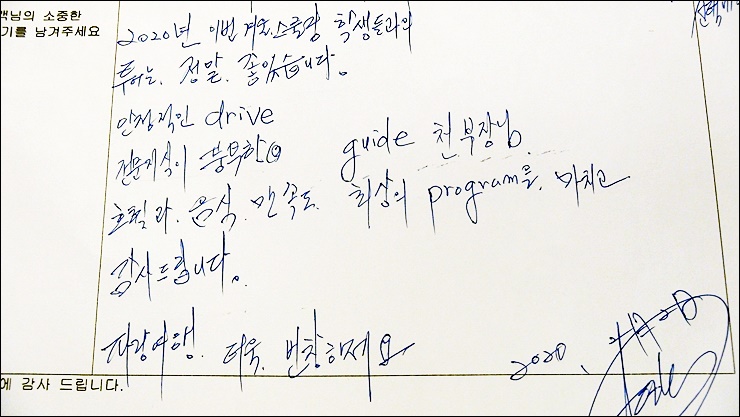 객님의 소중한
기를 남겨주세요
2020년 이번 겨울.스쿨링 학생들과의
투어는. 정말. 좋았습니다.
안정적인 drive
전문지식이 풍부한 guide 천부장님.
호텔과. 음식. 만족도. 최상의 program를. 마치고
감사드립니다.
자랑여행. 더욱. 번창하세요
2020.
에 감사 드립니다.